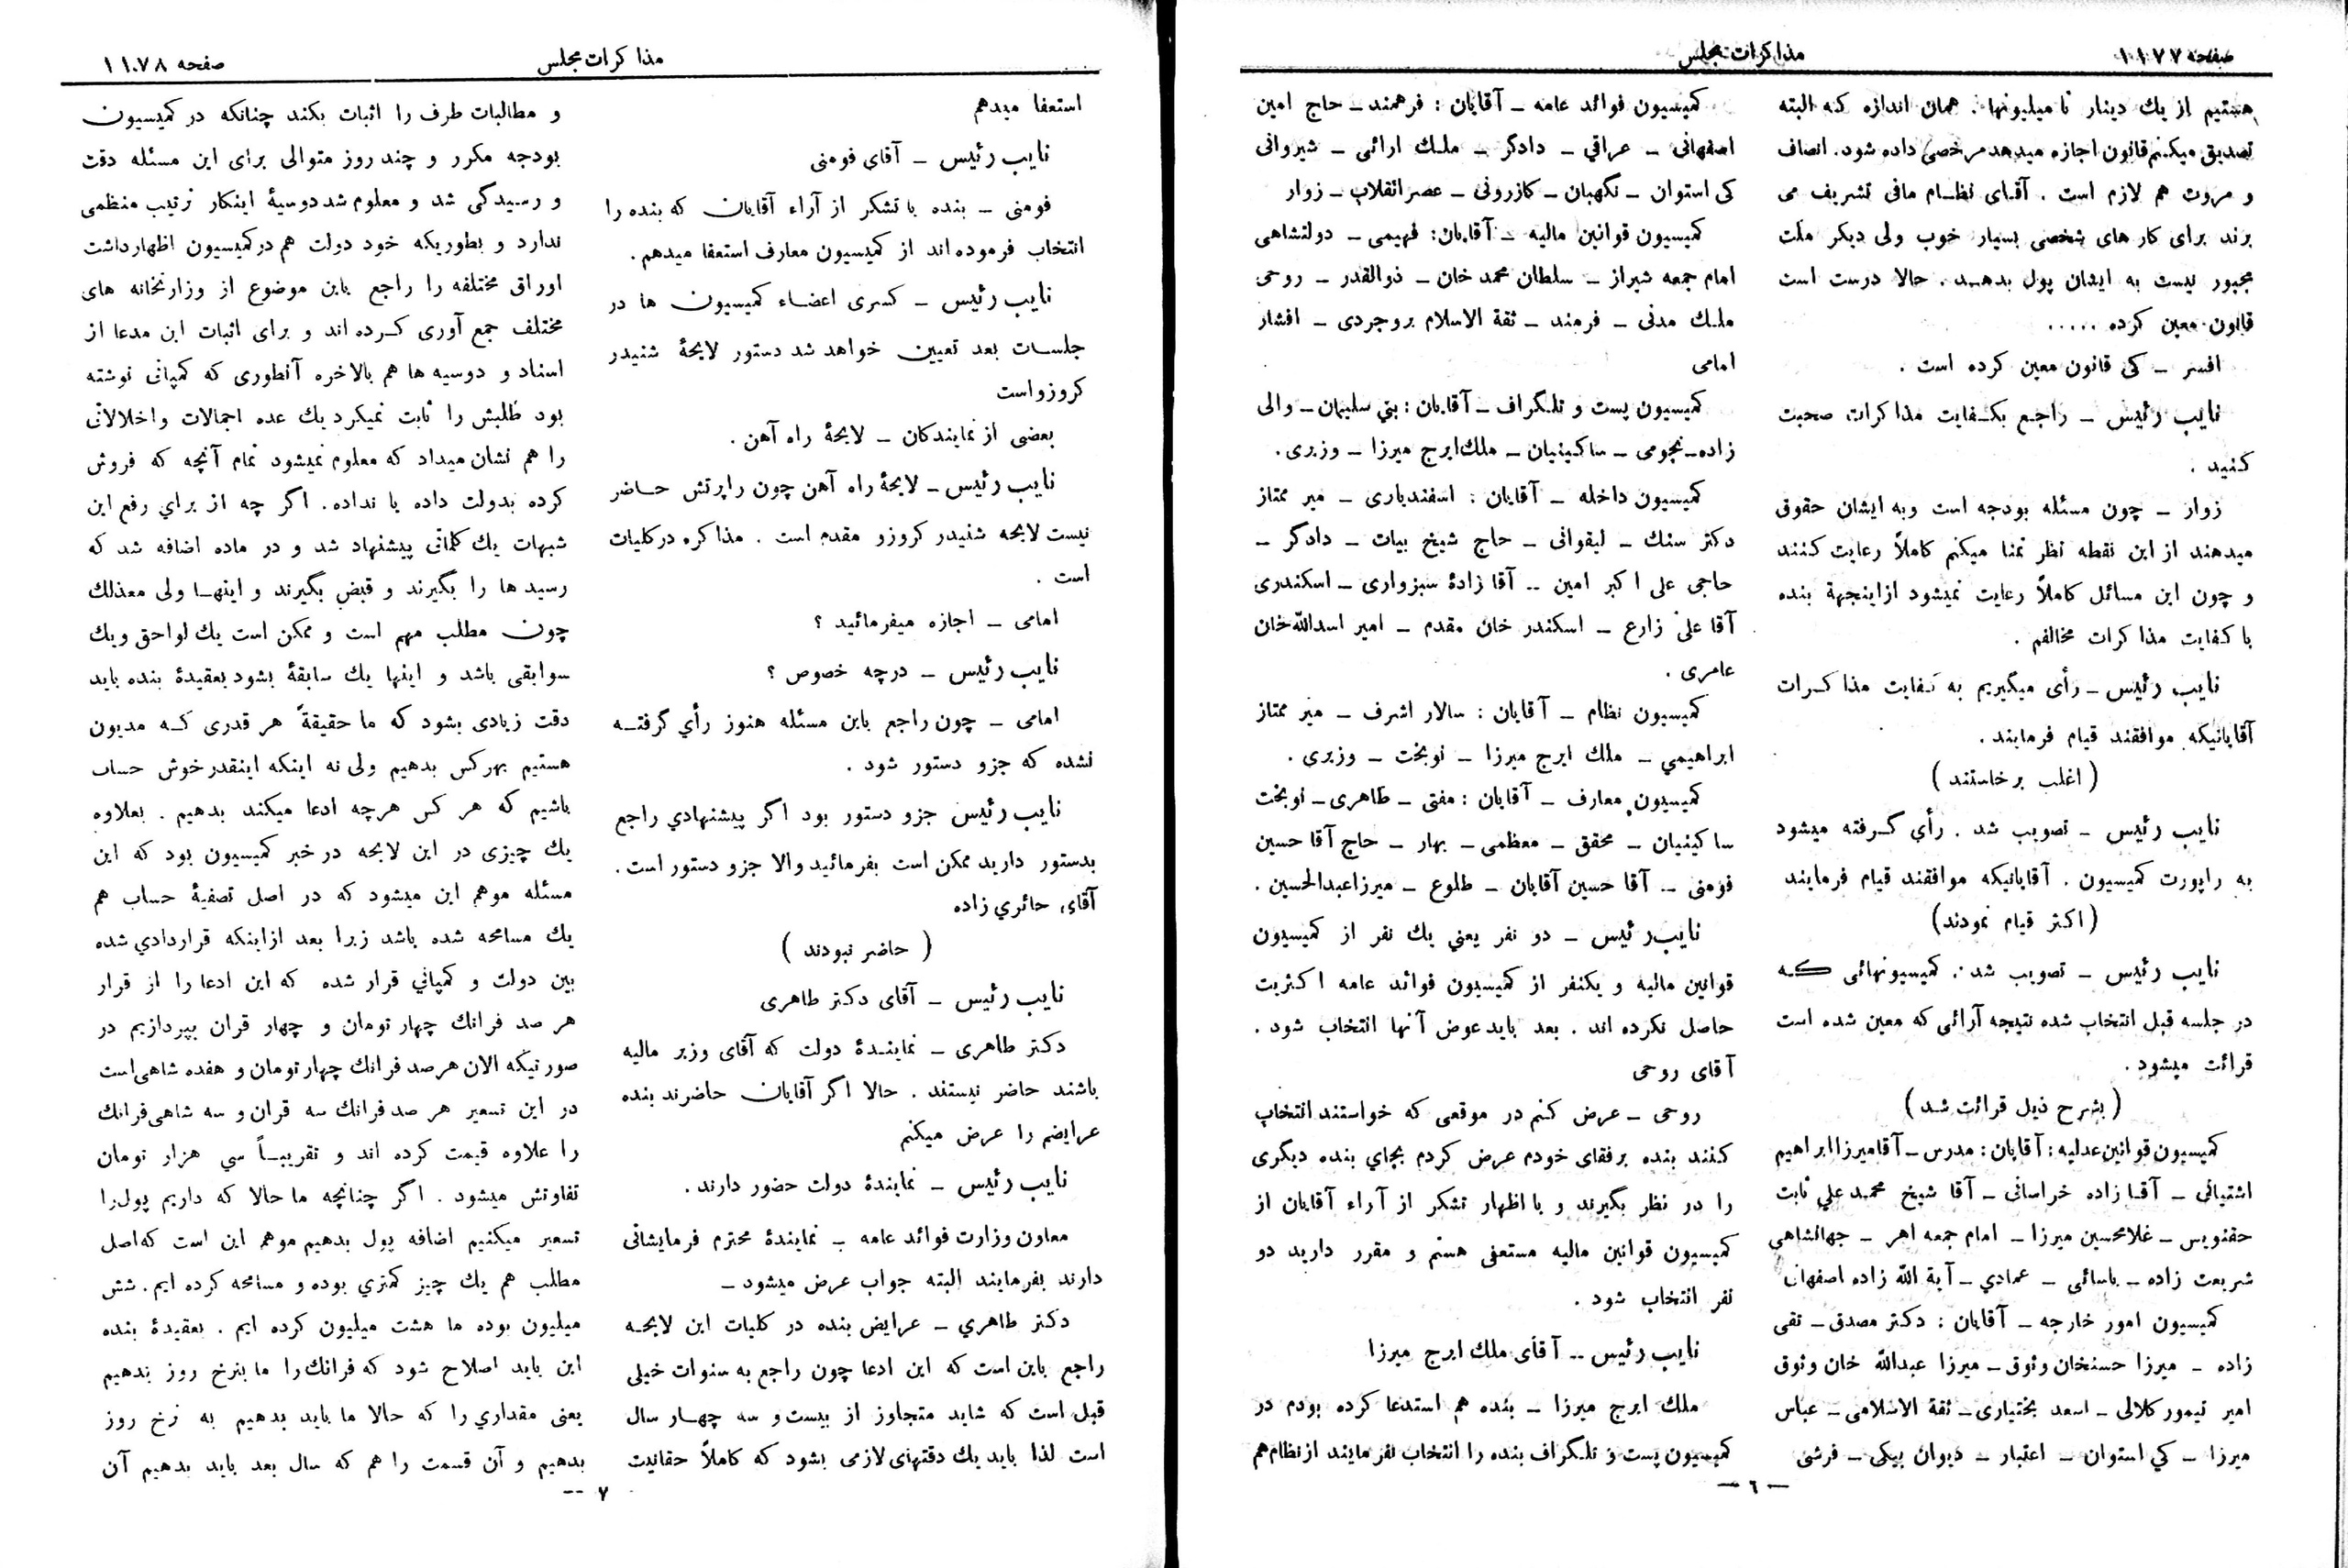 صفحه ۱۱۷۷
مذاکرات مجلس
هستیم از یك دینار تا میلیونها. همان اندازه که البته
تصدیق میکنم قانون اجازه میدهد مرخصی داده شود. انصاف
و مروت هم لازم است . آقای نظام مافی تشریف می
برند برای کار های شخصی بسیار خوب ولی دیگر ملت
مجبور نیست به ایشان پول بدهد. حالا درست است
قانون معین کرده .....
افسر ـ کی قانون معین کرده است .
نایب رئیس ـ راجع بکفایت مذاکرات صحبت
کنید .
زوار ـ چون مسئله بودجه است وبه ایشان حقوق
میدهند از این نقطه نظر تمنا میکنم کاملاً رعایت کنند
و چون این مسائل کاملاً رعایت نمیشود ازاینجهة بنده
با کفایت مذاکرات مخالفم .
نایب رئیس ـ رأی میگیریم به کفایت مذاکرات
آقایانیکه موافقند قیام فرمایند.
( اغلب برخاستند )
نایب رئیس ـ تصویب شد . رأي گرفته میشود
به راپورت کمیسیون . آقایانیکه موافقند قیام فرمایند
( اکثر قیام نمودند)
نایب رئیس ـ تصویب شد. کمیسیونهائی که
در جلسه قبل انتخاب شده نتیجه آرائی که معین شده است
قرائت میشود.
( بشرح ذیل قرائت شد )
کمیسیون قوانین عدلیه : آقایان : مدرس ـ آقامیرزا ابراهیم
اشتیانی ـ آقا زاده خراسانی ـ آقا شیخ محمد علی ثابت
حقنویس ـ غلامحسین میرزا ـ امام جمعه اهر ـ جهانشاهی
شریعت زاده ـ یاسائی ـ عمادي ـ آیة الله زاده اصفهانی
کمیسیون امور خارجه ـ آقایان : دکتر مصدق ـ تقی
زاده ـ میرزا حسنخان وثوق ـ میرزا عبدالله خان وثوق
امیر تیمور کلالی ـ اسعد بختیاری ـ ثقة الاسلامی ـ عباس
میرزا ـ کي استوان ـ اعتبار ـ دیوان بیگی ـ فرشی
کمیسیون فوائد عامه ـ آقایان : فرهمند ـ حاج امین
اصفهانی ـ عراقي ـ دادگر ـ ملك ارائی ـ شیروانی
کی استوان ـ نگهبان ـ کازرونی ـ عصر انقلاب ـ زوار
کمیسیون قوانین مالیه ـ آقایان: فهیمی ـ دولتشاهی
امام جمعه شیراز ـ سلطان محمد خان ـ ذوالقدر ـ روحی
ملك مدنی ـ فرمند ـ ثقة الاسلام بروجردی ـ افشار
امامی
کمیسیون پست و تلگراف ـ آقایان : بني سلیمان ـ والی
زاده ـ نجومی ـ ساکینیان ـ ملك ایرج میرزا ـ وزیری.
کمیسیون داخله ـ آقایان : اسفندیاری ـ میر ممتاز
دکتر سنك ـ لیقوانی ـ حاج شیخ بیات ـ دادگر ـ
حاجی علی اکبر امین ـ آقا زادهٔ سبزواری ـ اسکندری
آقا علی زارع ـ اسکندر خان مقدم ـ امیر اسدالله خان
عامری .
کمیسیون نظام ـ آقایان : سالار اشرف ـ میر ممتاز
ابراهیمي ـ ملك ایرج میرزا ـ نوبخت ـ وزیری .
کمیسیون معارف ـ آقایان : مفتی ـ طاهری ـ نوبخت
ساکینیان ـ محقق ـ معظمی ـ بهار ـ حاج آقا حسین
فومنی ـ آقا حسین آقایان ـ طلوع ـ میرزا عبدالحسین .
نایب رئیس ـ دو نفر یعنی یك نفر از کمیسیون
قوانین مالیه و یکنفر از کمیسیون فوائد عامه اکثریت
حاصل نکرده اند . بعد باید عوض آنها انتخاب شود .
آقای روحی
روحی ـ عرض کنم در موقعی که خواستند انتخاب
کنند بنده برفقای خودم عرض کردم بجاي بنده دیگری
را در نظر بگیرند و با اظهار تشکر از آراء آقایان از
کمیسیون قوانین مالیه مستعفی هستم و مقرر دارید دو
نفر انتخاب شود .
نایب رئیس ـ آقای ملك ایرج میرزا
ملك ایرج میرزا ـ بنده هم استدعا کرده بودم در
کمیسیون پست و تلگراف بنده را انتخاب نفرمایند از نظام هم
ـ ٦ ـ
صفحه ۱۱۰۷۸
مذاکرات مجلس
استعفا میدهم
نایب رئیس ـ آقای فومنی
فومنی ـ بنده با تشکر از آراء آقایان که بنده را
انتخاب فرموده اند از کمیسیون معارف استعفا میدهم .
نایب رئیس ـ کسری اعضاء کمیسیون ها در
جلسات بعد تعیین خواهد شد دستور لایحهٔ شنیدر
کروزو است
بعضی از نمایندگان ـ لایحهٔ راه آهن .
نایب رئیس ـ لایحهٔ راه آهن چون راپرتش حاضر
نیست لایحه شنیدر کروزو مقدم است . مذاکره در کلیات
است .
امامی ـ اجازه میفرمائید ؟
نایب رئیس ـ درچه خصوص ؟
امامی ـ چون راجع باین مسئله هنوز رأي گرفته
نشده که جزو دستور شود .
نایب رئیس جزو دستور بود اگر پیشنهادي راجع
بدستور دارید ممکن است بفرمائید والا جزو دستور است .
آقای حائري زاده
( حاضر نبودند )
نایب رئیس ـ آقای دکتر طاهری
دکتر طاهری ـ نمایندهٔ دولت که آقای وزیر مالیه
باشند حاضر نیستند . حالا اگر آقایان حاضرند بنده
عرایضم را عرض میکنم
نایب رئیس ـ نمایندهٔ دولت حضور دارند .
معاون وزارت فوائد عامه ـ نمایندهٔ محترم فرمایشاتی
دارند بفرمایند البته جواب عرض میشود ـ
دکتر طاهري ـ عرایض بنده در کلیات این لایحه
راجع باین است که این ادعا چون راجع به سنوات خیلی
قبل است که شاید متجاوز از بیست و سه چهار سال
است لذا باید یك دقتهای لازمی بشود که کاملاً حقانیت
و مطالبات طرف را اثبات بکند چنانکه در کمیسیون
بودجه مکرر و چند روز متوالی برای این مسئله دقت
و رسیدگی شد و معلوم شد دوسیهٔ اینکار ترتیب منظمی
ندارد و بطوریکه خود دولت هم در کمیسیون اظهار داشت
اوراق مختلفه را راجع باین موضوع از وزارتخانه های
مختلف جمع آوری کرده اند و برای اثبات این مدعا از
اسناد و دوسیه ها هم بالاخره آنطوری که کمپانی نوشته
بود طلبش را ثابت نمیکرد یك عده اجمالات و اخلالاتی
را هم نشان میداد که معلوم نمیشود تمام آنچه که فروش
کرده بدولت داده یا نداده. اگر چه از براي رفع این
شبهات یك کلماتی پیشنهاد شد و در ماده اضافه شد که
رسید ها را بگیرند و قبض بگیرند و اینها ولی معذلك
چون مطلب مهم است و ممکن است یك لواحق ویك
سوابقی باشد و اینها یك سابقهٔ بشود بعقیدهٔ بنده باید
دقت زیادی بشود که ما حقیقةً هر قدری که مدیون
هستیم بهرکس بدهیم ولی نه اینکه اینقدر خوش حساب
باشیم که هر کس هرچه ادعا میکند بدهیم . بعلاوه
یك چیزی در این لایحه در خبر کمیسیون بود که این
مسئله موهم این میشود که در اصل تصفیهٔ حساب هم
یك مسامحه شده باشد زیرا بعد از اینکه قراردادي شده
بین دولت و کمپاني قرار شده که این ادعا را از قرار
هر صد فرانك چهار تومان و چهار قران بپردازیم در
صورتیکه الان هر صد فرانك چهار تومان و هفده شاهی است
در این تسعیر هر صد فرانك سه قران و سه شاهی فرانك
را علاوه قیمت کرده اند و تقریباً سي هزار تومان
تفاوتش میشود . اگر چنانچه ما حالا که داریم پول را
تسعیر میکنیم اضافه پول بدهیم موهم این است که اصل
مطلب هم یك چیز کمتري بوده و مسامحه کرده ایم. شش
میلیون بوده ما هشت میلیون کرده ایم . بعقیدهٔ بنده
این باید اصلاح شود که فرانك را ما بنرخ روز بدهیم
یعنی مقداري را که حالا ما باید بدهیم به نرخ روز
بدهیم و آن قسمت را هم که سال بعد باید بدهیم آن
۷ --